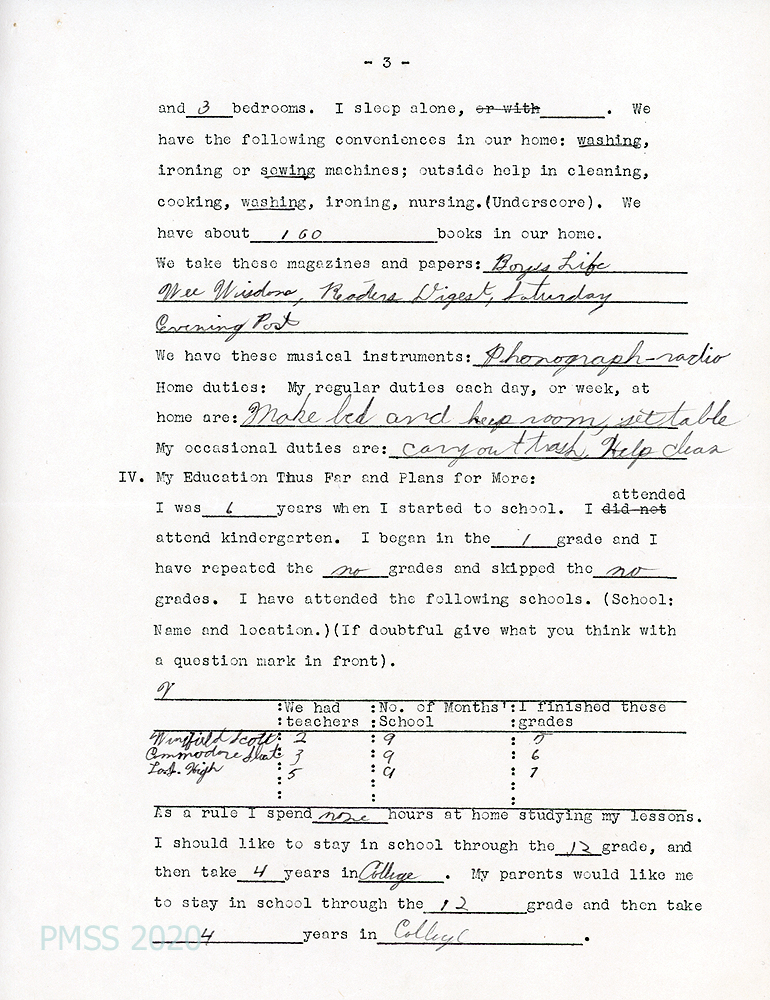 - 3 -
and 3 bedrooms. I sleep alone, or with ______. We
have the following conveniences in our home: washing,
ironing or sewing machines; outside help in cleaning,
cooking, washing, ironing, nursing.(Underscore). We
have about 160 books in our home.
We take these magazines and papers: Boys Life
Wee Wisdom, Readers Digest, Saturday
Evening Post
We have these musical instruments: Phonograph-radio
Home duties: My regular duties each day, or week, at
home are: Make bed and keep room, set table
My occasional duties are: carry out trash, Help clean
IV. My Education Thus Far and Plans for More:
attended
I was 6 years when I started to school. I did not
attend kindergarten. I began in the 1 grade and I
have repeated the no grades and skipped the no
grades. I have attended the following schools. (School:
Name and location.)(If doubtful give what you think with
a question mark in front).
:We had :No. of Months':I finished these
:teachers :School :grades
Winfield Scott: 2 : 9 : 5
Commodore : 3 : 9 : 6
High : 5 : 9 : 7
As a rule I spend none hours at home studying my lessons.
I should like to stay in school through the 12 grade, and
then take 4 years in College. My parents would like me
to stay in school through the 12 grade and then take
4 years in College.
PMSS 2020